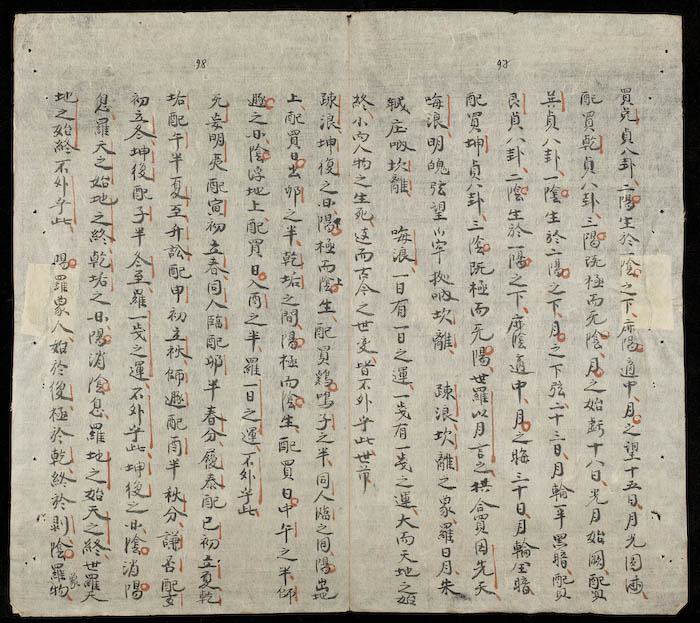 97
買兌貞八卦二陽生於一陰之下亦陽適中月之望十五日月光圓滿
配買乾貞八卦三陽既極而无陰月之始虧十八日光月始闕配買
巽貞八卦一陰生於二陽之下月之下弦二十三日月輪一半黑暗配買
艮貞八卦二陰生於一陽之下亦陰適中月之晦三十日月輪全暗
配買坤貞八卦三陰既極而无陽世羅以月言之拱合買圖先天
浪明魄弦望 坎離 疎浪坎離之象羅日月朱
庄 坎離 浪一日有一日之運一歲有一歲之運大而天地之始
終小而人物之生死遠而古今之世變皆不外乎此世帝
98
疎浪坤復之間陽極而陰生配買鷄鳴子之半同人臨之間陽出地
上配買日出卯之半乾垢之間陽極而陰生配買日中午之半師
遯之間陰浮地上配買日入酉之半羅一日之運不外乎此
无妄明夷配寅初立春同人臨配卯半春分履泰配巳初立夏乾
垢配午半夏至升訟配申初立秋師遯配酉半秋分謙否配亥
初立冬坤復配子半冬至羅一歲之運不外乎此坤復之間陰消陽
息羅天之始地之終乾垢之間陽消陰息羅地之始天之終世羅天
地之始終不外乎此 陽羅象人始於復極於乾終於剝陰羅象物